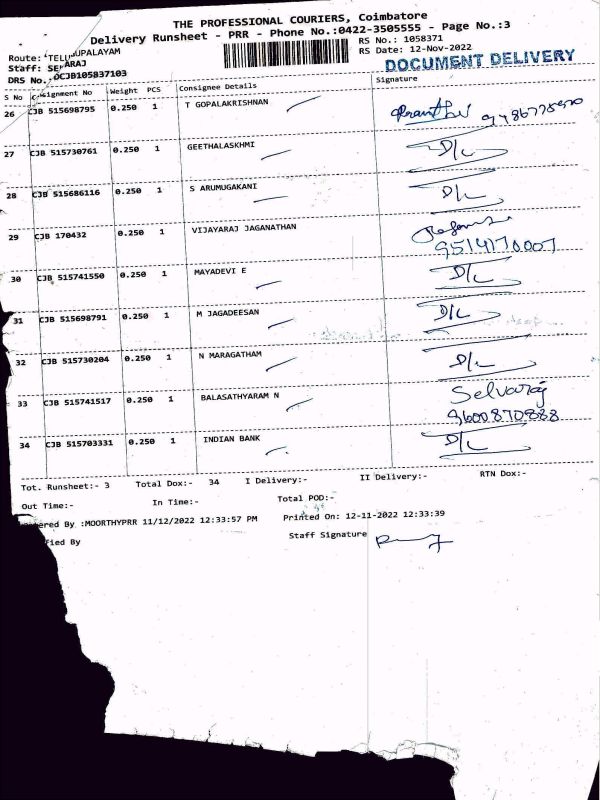 THE PROFESSIONAL COURIERS, Coimbatore
Delivery Runsheet - PRR - Phone No.:0422-3505555 - Page No.:3
RS No.: 1058371
RS Date: 12-Nov-2022
Route: TELUGUPALAYAM
Staff: SE ARAJ
DRS No.-DCJB105837103
DOCUMENT DELIVERY
S No Consignment No Weight PCS Consignee Details Signature
26 CJB 515698795 0.250 1 T GOPALAKRISHNAN
27 CJB 515730761 0.250 1 GEETHALASKHMI D/C
28 CJB 515686116 0.250 1 S ARUMUGAKANI D/C
29 CJB 170432 0.250 1 VIJAYARAJ JAGANATHAN
9514170007
30 CJB 515741550 0.250 1 MAYADEVI E D/C
31 CJB 515698791 0.250 1 M JAGADEESAN D/C
32 CJB 515730204 0.250 1 N MARAGATHAM D/C
33 CJB 515741517 0.250 1 BALASATHYARAM N Selvaraj
9600870888
34 CJB 515703331 0.250 1 INDIAN BANK D/C
Tot. Runsheet:- 3 Total Dox:- 34 I Delivery:- II Delivery:- RTN Dox:-
Out Time:- In Time:- Total POD:-
ered By :MOORTHYPRR 11/12/2022 12:33:57 PM Printed On: 12-11-2022 12:33:39
fied By Staff Signature